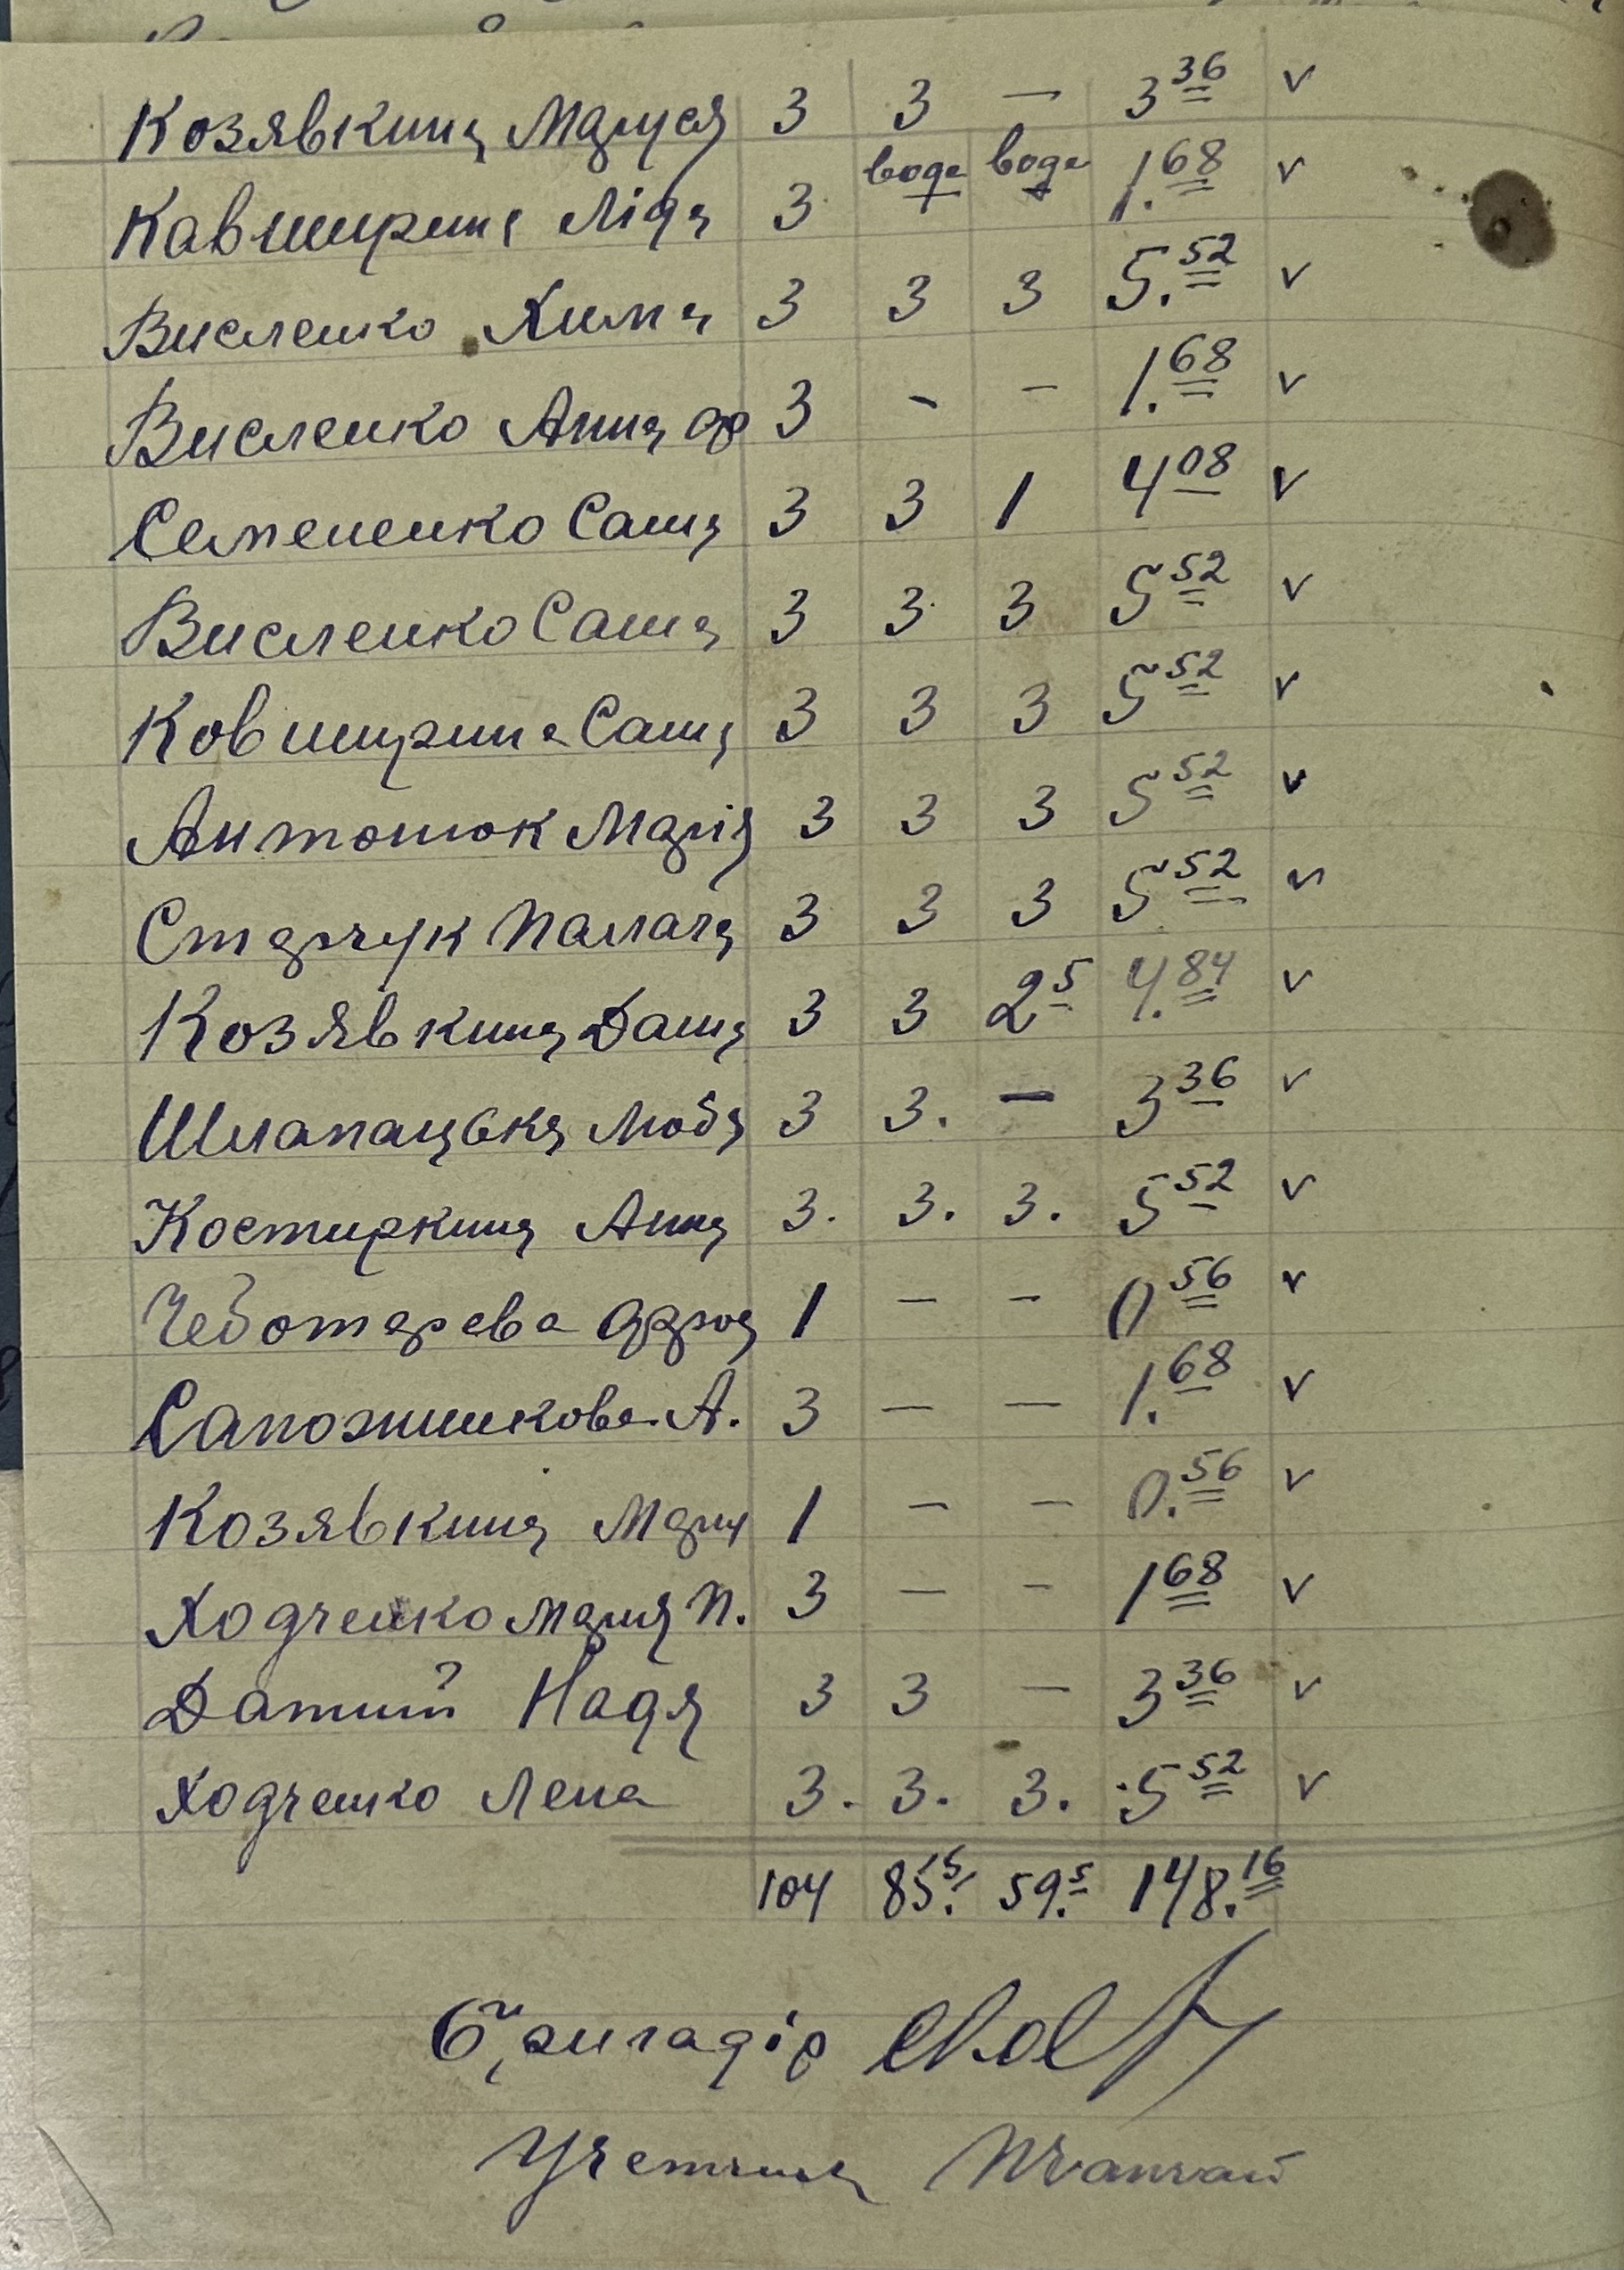 Козявкина Маруся 3 3 — 3 36 v
Кавширина Ліда 3 вода вода 1.68 v
Висленко Хима 3 3 3 5.52 v
Висленко Анна ф 3 - - 1.68 v
Семененко Саша 3 3 1 4 08 v
Висленко Саша 3 3 3 5 52 v
Ковширина Саша 3 3 3 5 52 v
Антонюк Марія 3 3 3 5 52 v
Старчук Палага 3 3 3 5 52 v
Козявкина Даша 3 3 2 5 4.84 v
Шпапацька Люба 3 3. — 3 36 v
Костиркина Анна 3. 3. 3. 5 52 v
Чеботарева 1 — - 0 56 v
Сапожникова А. 3 — — 1.68 v
Козявкина Мария 1 — — 0.56 v
Ходченко Мария П. 3 — - 1 68 v
Датий Надя 3 3 — 3 36 v
Ходченко Лена 3. 3. 3. 5 52 v
104 85.5 59.5 148.16
Бригадір
Учетчик